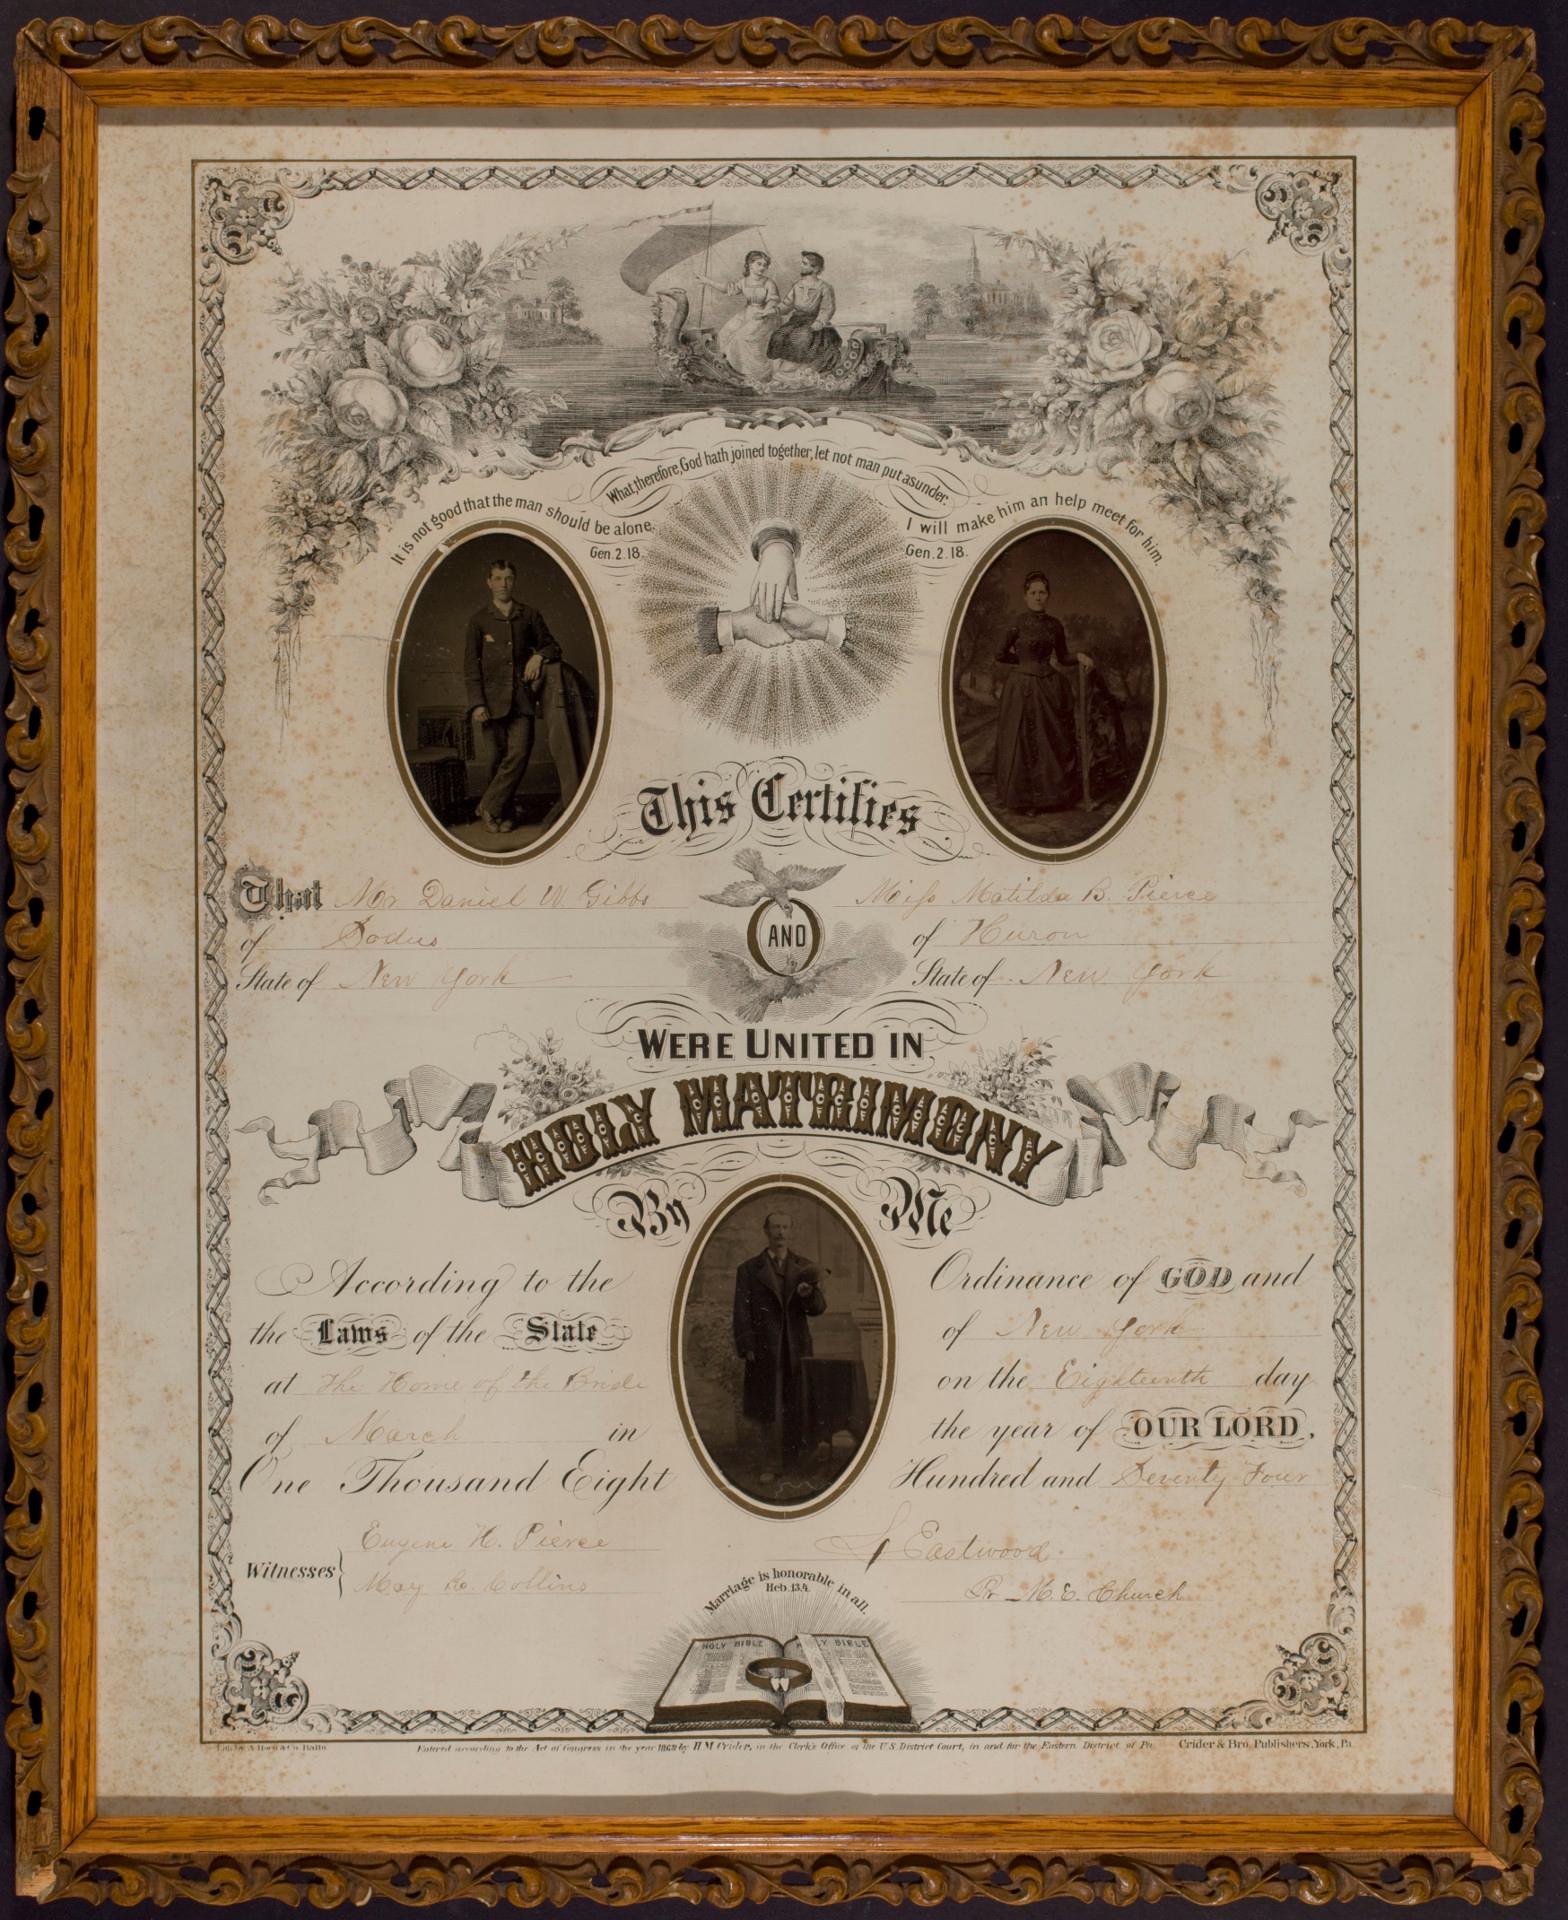 What, therefore, God hath joined together, let not man put asunder.
It is not good that the man should be alone.
Gen. 2. 18.
I will make him an help meet for him.
Gen. 2. 18.
This Certifies
That Mr Daniel W. Gibbs AND Miss Matilda B. Pierce
of Sodus of Huron
State of New York State of New York
WERE UNITED IN
HOLY MATRIMONY
By Me
According to the Ordinance of GOD and
the Laws of the State of New York
at The Home of the Bride on the Eighteenth day
of March in the year of OUR LORD,
One Thousand Eight Hundred and Seventy Four
Witnesses
Eugene H. Pierce
May R. Collins
Eastwood.
Pr M. E. Church
Marriage is honorable in all.
Heb. 13.4.
HOLY BIBLE HOLY BIBLE
Lith. by A. Hoen & Co. Balto.
Entered according to the Act of Congress in the year 1868 by H M Crider, in the Clerk's Office of the U S District Court, in and for the Eastern District of Pa
Crider & Bro. Publishers, York, Pa.